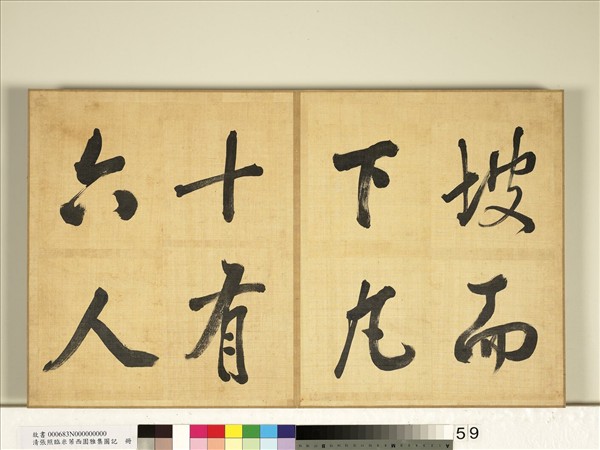 坡而
下凡
十有
六人
故書 000683N000000000
清張照臨米芾西園雅集圖記 冊
59